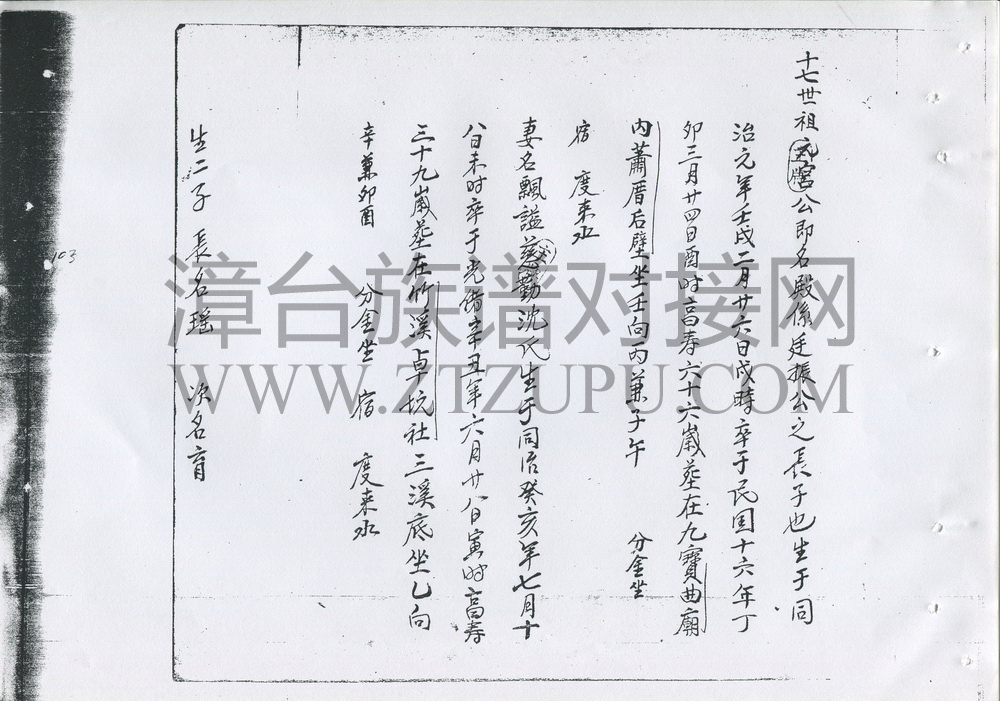 十七世祖元宮公即名殿係廷振公之長子也生于同
治元年壬戌二月廿六日戌時卒于民国十六年丁
卯三月廿四日酉时高寿六十六嵗塟在九寶曲廟
内蕭厝后壁坐壬向丙兼子午 分金坐
宿 度来水
妻名飄謚慈勤沈氏生于同治癸亥年七月十
八日未时卒于光绪辛丑年六月廿八日寅时高寿
三十九嵗塟在竹溪卓坑社三溪底坐乙向
辛兼卯酉 分金坐 宿 度来水
生二子 長名瑶 次名育
103
漳台族谱对接网
WWW.ZTZUPU.COM